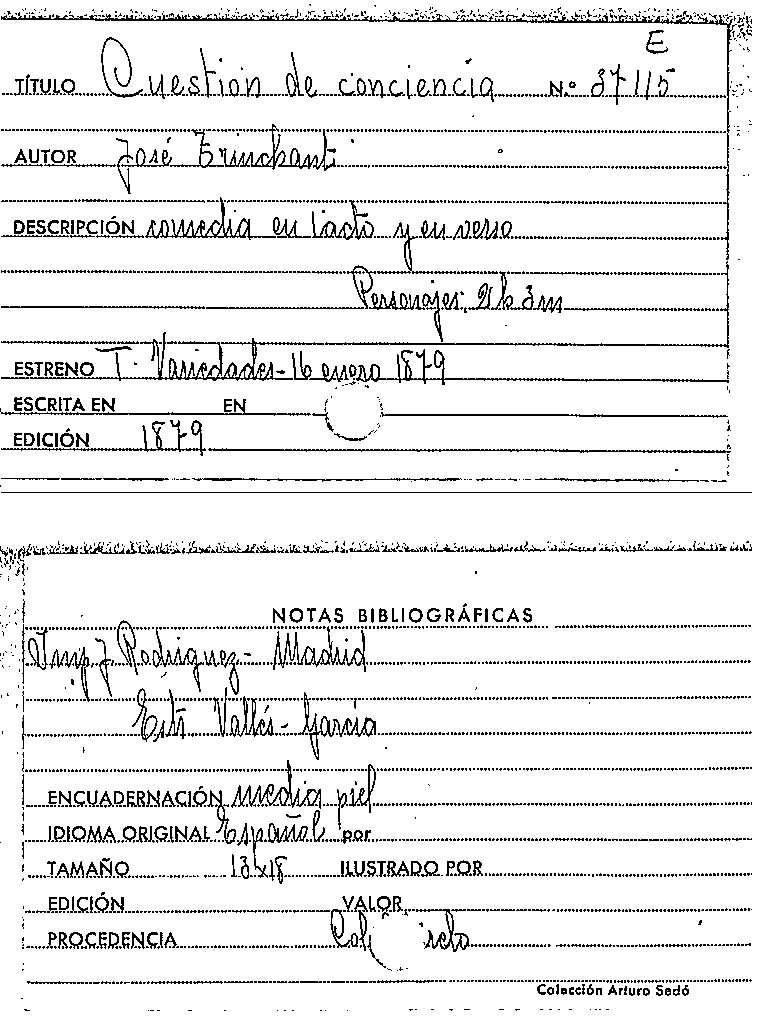 E
TÍTULO Cuestión de conciencia N.º 37115
AUTOR José Trinchant
DESCRIPCIÓN comedia en 1 acto y en verso
Personajes, 2 h 3 m
ESTRENO T. Variedades-16 enero 1879
ESCRITA EN EN
EDICIÓN 1879
NOTAS BIBLIOGRÁFICAS
Imp J Rodriguez- Madrid
Vallés-García
ENCUADERNACIÓN media piel
IDIOMA ORIGINAL Español por
TAMAÑO 13x18 ILUSTRADO POR
EDICIÓN VALOR
PROCEDENCIA
Colección Arturo Sedó